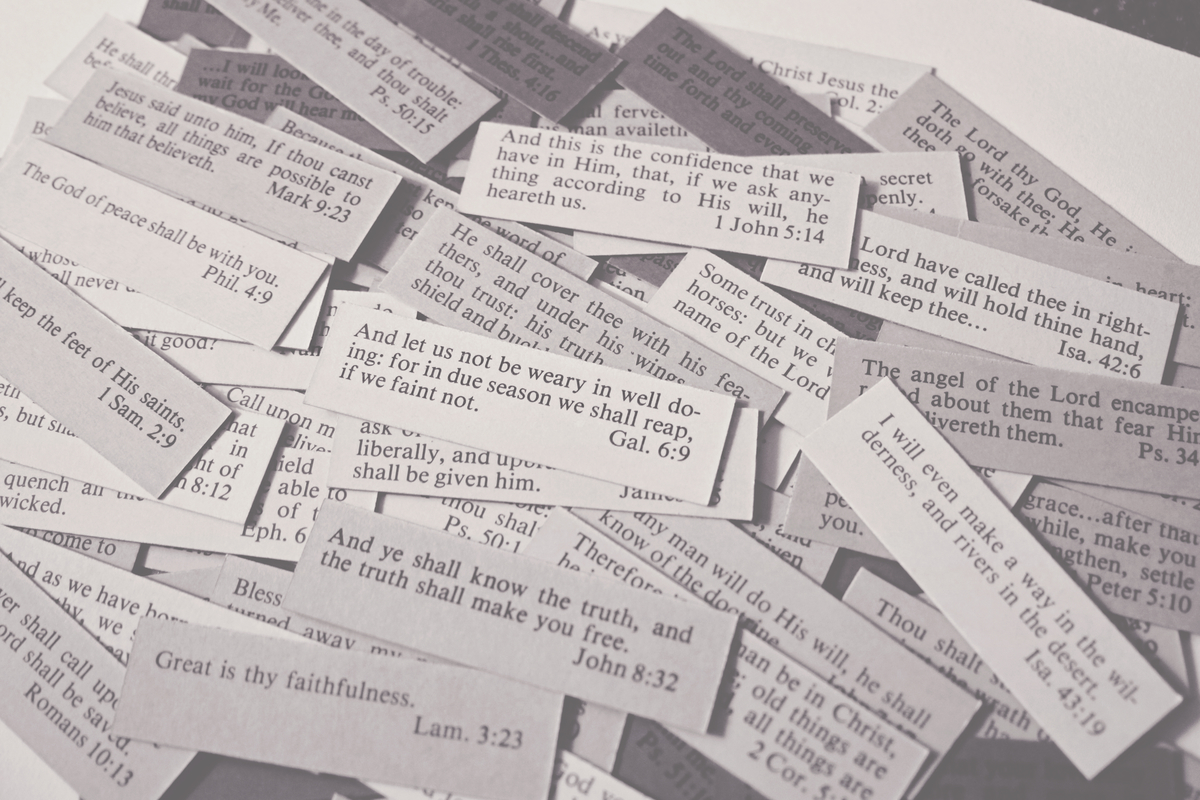 shall descend
with a shout...and
Christ shall rise first.
1 Thes. 4:16
in the day of trouble:
deliver thee, and thou shalt
by Me.
Ps. 50:15
The Lord shall preserve
out and thy coming
time forth and even
Christ Jesus the
Col. 2:
He shall thr
...I will look
wait for the Go
my God will hear me
Jesus said unto him, If thou canst
believe, all things are possible to
him that believeth.
Mark 9:23
Because
ferve
man availeth
And this is the confidence that we
have in Him, that, if we ask any-
thing according to His will, he
heareth us.
1 John 5:14
secret
penly.
The Lord thy God, He
doth go with thee; He
forsake
The God of peace shall be with you.
Phil. 4:9
whose
all never
it good?
keep the feet of His saints.
1 Sam. 2:9
the word of
He shall cover thee with his fea-
thers, and under his wings
thou trust: his truth
shield and
Some trust in ch
horses: but we
name of the Lord
Lord have called thee in right-
ness, and will hold thine hand,
and will keep thee...
Isa. 42:6
heart:
The angel of the Lord encampe
about them that fear Him
livereth them.
Ps. 34
And let us not be weary in well do-
ing: for in due season we shall reap,
if we faint not.
Gal. 6:9
ask
liberally, and
shall be given him.
James
Call upon m
hat
in
nt of
8:12
ield
able to
of t
Eph. 6
s, but
quench all the
wicked.
come to
thou shal
Ps. 50:1
I will even make a way in the wil-
derness, and rivers in the desert.
Isa. 43:19
you.
grace...after that
while, make you
ngthen, settle
Peter 5:10
And ye shall know the truth, and
the truth shall make you free.
John 8:32
any man will do His will, he shall
know of the doctrine
Therefore
man be in Christ,
old things are
all things are
2 Cor. 5:
Thou shalt
wrath
Bless
turned away my
nd as we have
we
Great is thy faithfulness.
Lam. 3:23
ver shall call upo
ord shall be saved.
Romans 10:13
God
Ps. 51:1